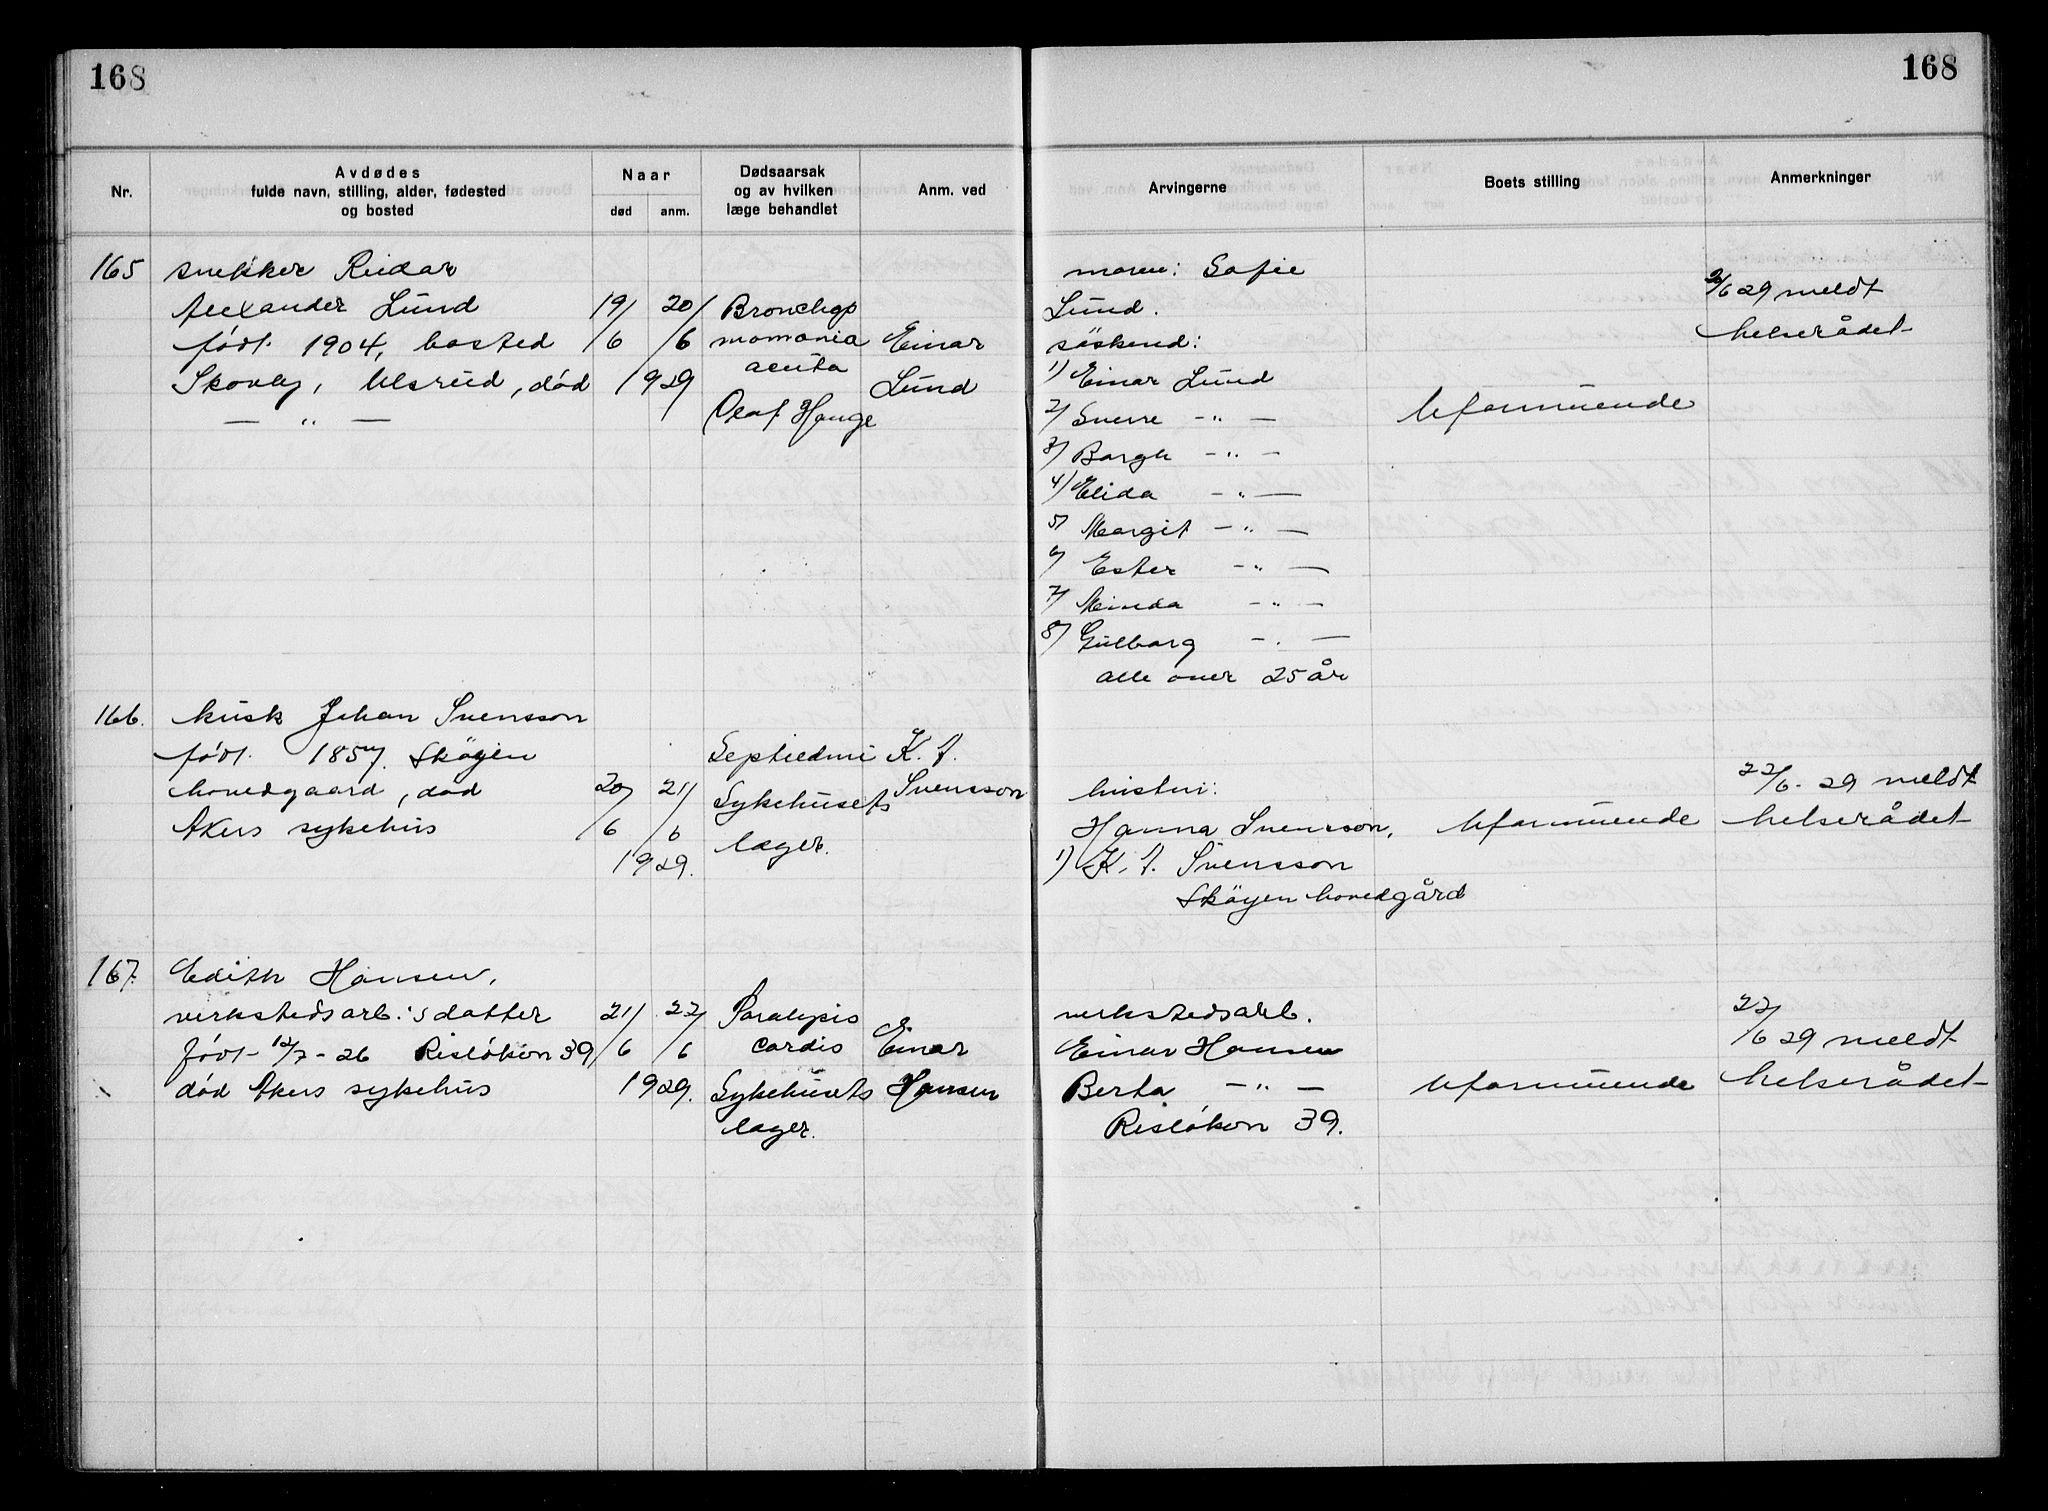 168
168
Nr.
Avdødes
fulde navn, stilling, alder, fødested
og bosted
Naar
død
anm.
Dødsaarsak
og av hvilken
læge behandlet
Anm. ved
Arvingerne
Boets stilling
Anmerkninger
165
snekker Reidar
Alexander Lund
født 1904, bosted
Skovly, Ulsrud, død
— „ —
19/6
20/6
1929
acuta
Olaf Hauge
Einar
Lund
moren: Sofie
Lund.
söskend:
1) Einar Lund
2) Sverre — „ —
3) — „ —
4) Elida — „ —
5) Margit — „ —
6) Ester — „ —
7) Minda — „ —
8) Gulborg — „ —
alle over 25 år
Uformuende
/6 29 meldt
helserådet
166.
kusk Johan Svensson
født 1857. Skøyen
hovedgaard, død
Akers sykehus
20/6
21/6
1929.
Sykehusets
læger.
K.
Svensson
hustru:
Hanna Svensson,
1) K. Svensson
Skøyen hovedgård
Uformuende
22/6-29 meldt
helserådet
167.
Edith Hansen,
verkstedsarb.'s datter
født 12/7-26 Risløkon 39
død Akers sykehus
21/6
22/6
1929.
Paralysis
cordis
Sykehusets
læger.
Einar
Hansen
verkstedsarb.
Einar Hansen
Berta — „ —
Risløkon 39.
Uformuende
22/6 29 meldt
helserådet